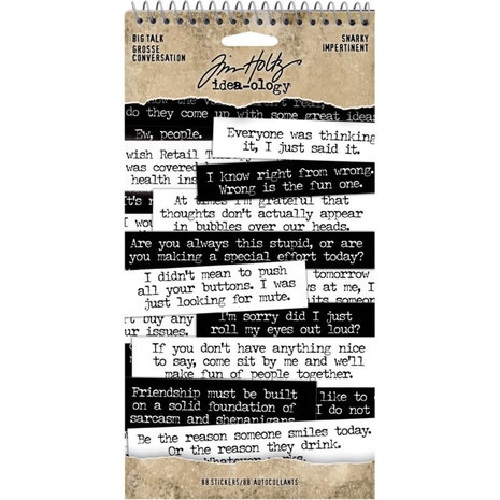 BIG TALK
GROSSE
CONVERSATION
SNARKY
IMPERTINENT
Tim Holtz
idea-ology
do they come up with some great ideas
Ew, people.
Everyone was thinking
it, I just said it.
wish Retail
was covered
health ins
I know right from wrong.
Wrong is the fun one.
It's
I wou
At times I'm grateful that
thoughts don't actually appear
in bubbles over our heads.
Are you always this stupid, or are
you making a special effort today?
I didn't mean to push
all your buttons. I was
just looking for mute.
tomorrow
s at me, I
its some
't buy any
ur issues.
I'm sorry did I just
roll my eyes out loud?
If you don't have anything nice
to say, come sit by me and we'll
make fun of people together.
Friendship must be built
on a solid foundation of
sarcasm and shenanigans
like to
I do not
Be the reason someone smiles today.
Or the reason they drink.
Whatever works.
88 STICKERS/88 AUTOCOLLANTS